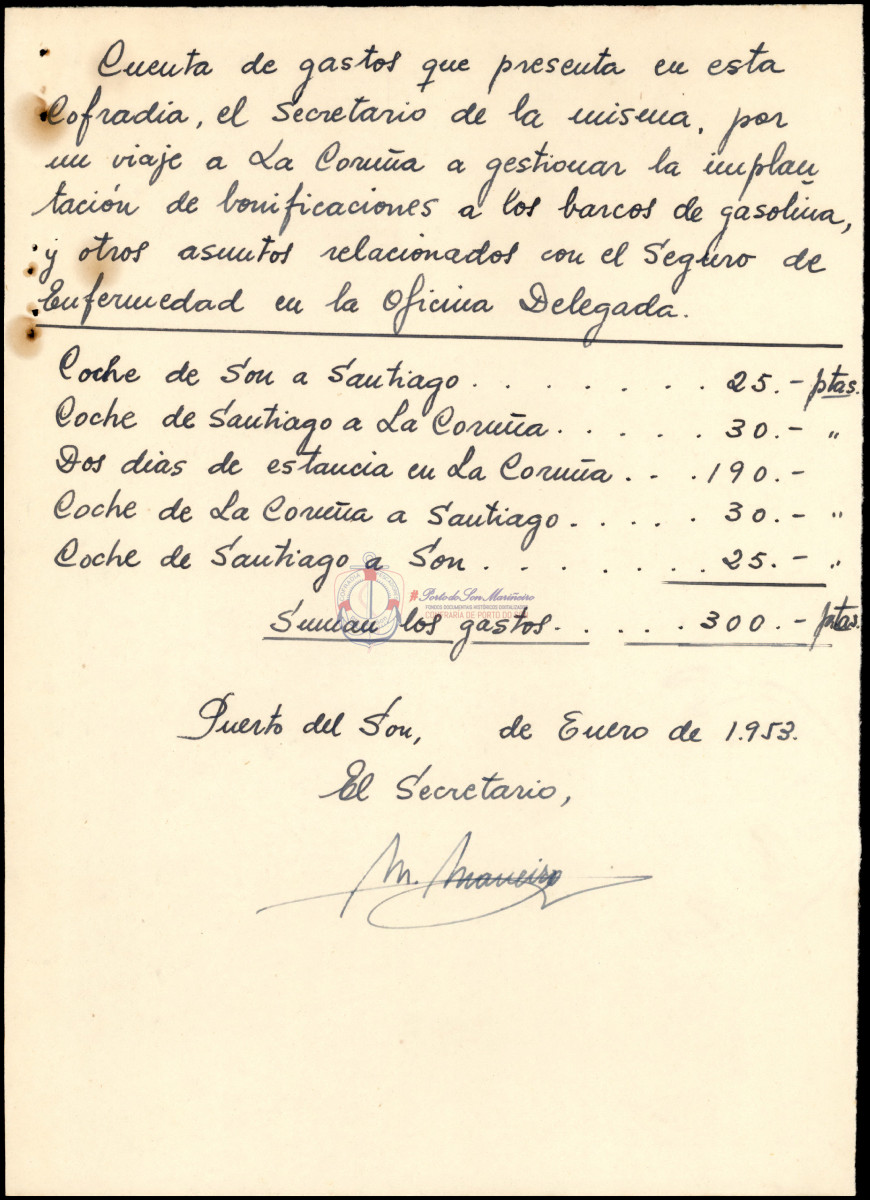 Cuenta de gastos que presenta en esta
Cofradia, el Secretario de la misma, por
un viaje a La Coruña a gestionar la implan
tación de bonificaciones a los barcos de gasolina,
y otros asuntos relacionados con el Seguro de
Enfermedad en la Oficina Delegada.
Coche de Son a Santiago . . . . . . . . 25.- ptas.
Coche de Santiago a La Coruña . . . . . 30.- "
Dos dias de estancia en La Coruña . . . 190.-
Coche de La Coruña a Santiago . . . . . 30.- "
Coche de Santiago a Son . . . . . . . . 25.- "
#Porto do Son Mariñeiro
FONDOS DOCUMENTAIS HISTÓRICOS DIXITALIZADOS
CONFRARÍA DE PORTO DO SON
Suman los gastos . . . . . 300.- ptas.
Puerto del Son, de Enero de 1.953.
El Secretario,
M. Maneiro